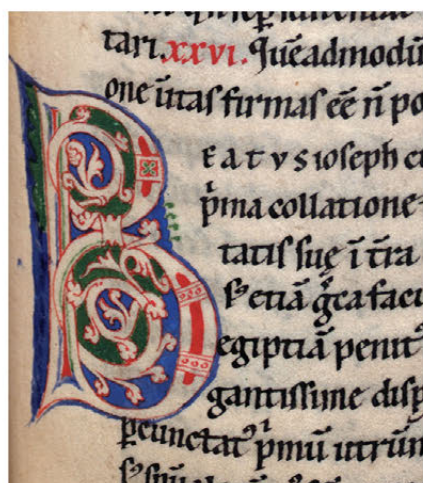 tari.xxvi. Quēadmodū
one ūtaſ firmaſ eē n̄ po
BEATVS ioſeph cu
p̄ma collatione
tatiſ ſuę ī t̄ra
etiā g̃ca facu
egiptiā penit
gantiſſime diſp
p̄mū utrum